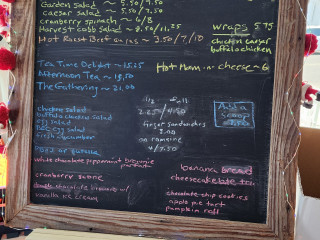 Garden salad ~ 5.50/9.50
caesar salad ~ 5.50/9.50
cranberry spinach ~ 6/8
Harvest cobb salad ~ 8.50/11.25
Hot Roast Beef au jus ~ 3.50/7/10
wraps 5.75
chicken caesar
buffalo chicken
Hot Ham n cheese ~ 6
Tea Time Delight ~ 15.15
Afternoon Tea ~ 18.50
The Gathering ~ 21.00
chicken salad
buffalo chicken salad
egg salad
BLT egg salad
fresh cucumber
1/2 full
2.25/4.50
finger sandwiches
2.00
on romaine
4/7.50
Add a
scoop
white chocolate peppermint brownie
parfait
cranberry scone
double chocolate brownie w/
vanilla ice cream
banana bread
cheesecake trio
chocolate chip cookies
apple pie tart
pumpkin roll